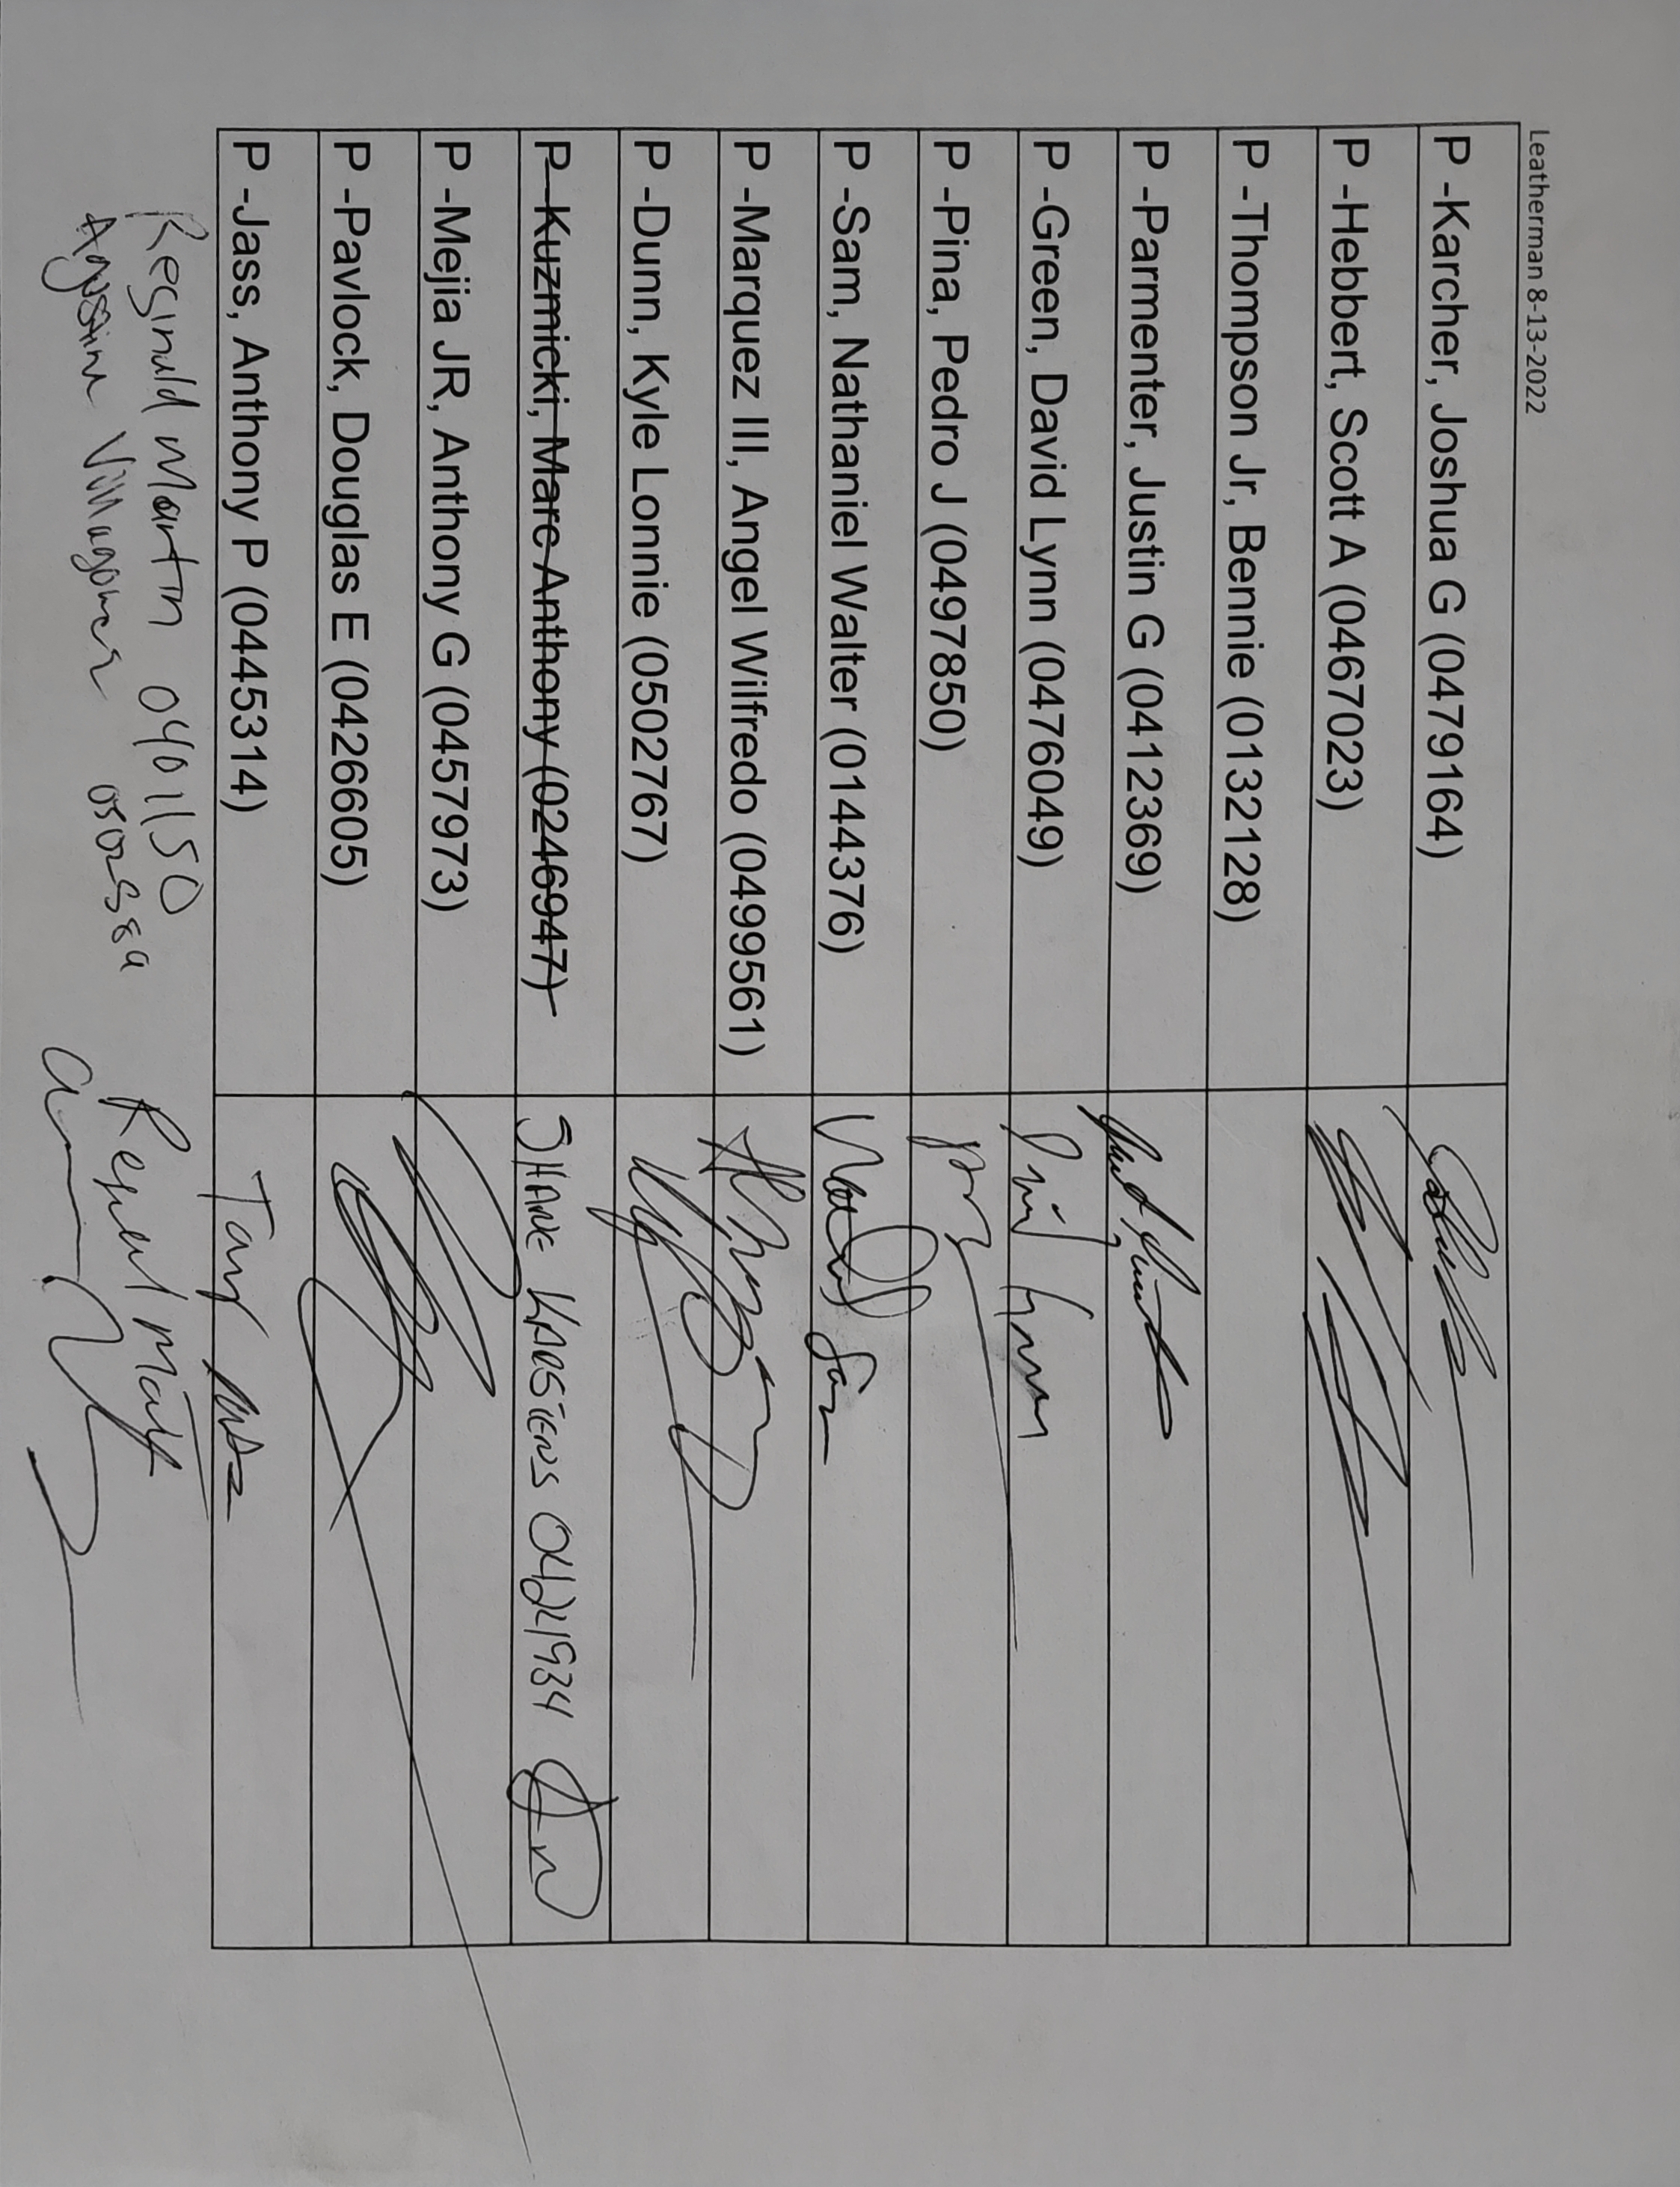 Leatherman 8-13-2022
P -Karcher, Joshua G (0479164)
P -Hebbert, Scott A (0467023)
P -Thompson Jr, Bennie (0132128)
P -Parmenter, Justin G (0412369)
P -Green, David Lynn (0476049)
P -Pina, Pedro J (0497850)
P -Sam, Nathaniel Walter (0144376) Sam
P -Marquez III, Angel Wilfredo (0499561)
P -Dunn, Kyle Lonnie (0502767)
P -Kuzmicki, Marc Anthony (0246947) SHANE KARSTENS 0421934
P -Mejia JR, Anthony G (0457973)
P -Pavlock, Douglas E (0426605)
P -Jass, Anthony P (0445314) Tony Jass
Reginald Martin 0401150
Villagomez